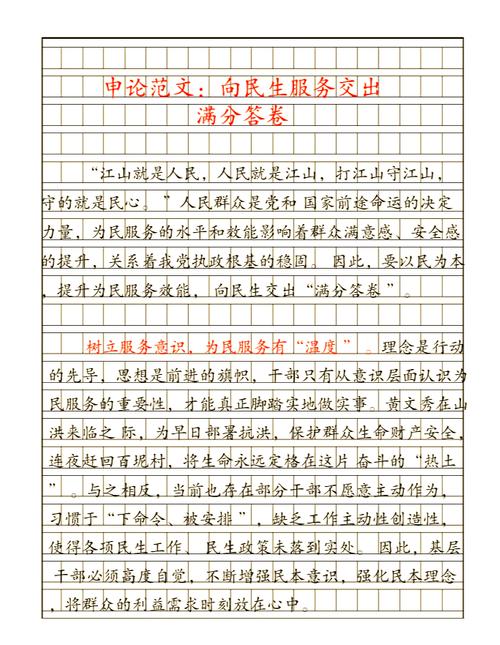 申论范文：向民生服务交出
满分答卷
“江山就是人民，人民就是江山，打江山守江山，
守的就是民心。”人民群众是党和 国家前途命运的决定
力量，为民服务的水平和效能影响着群众满意感、安全感
的提升，关系着我党执政根基的稳固。 因此，要以民为本
，提升为民服务效能， 向民生交出“满分答卷”。
树立服务意识，为民服务有“温度” 。理念是行动
的先导，思想是前进的旗帜，干部只有从意识层面认识为
民服务的重要性，才能真正脚踏实地做实事。黄文秀在山
洪来临之 际，为早日部署抗洪，保护群众生命财产安全，
连夜赶回百坭村，将生命永远定格在这片 奋斗的“热土
”。与之相反，当前也存在部分干部不愿意主动作为，
习惯于“下命令、被安排”，缺乏工作主动性创造性，
使得各项民生工作、 民生政策未落到实处。 因此，基层
干部必须高度自觉，不断增强民本意识，强化民本理念
，将群众的利益需求时刻放在心中。